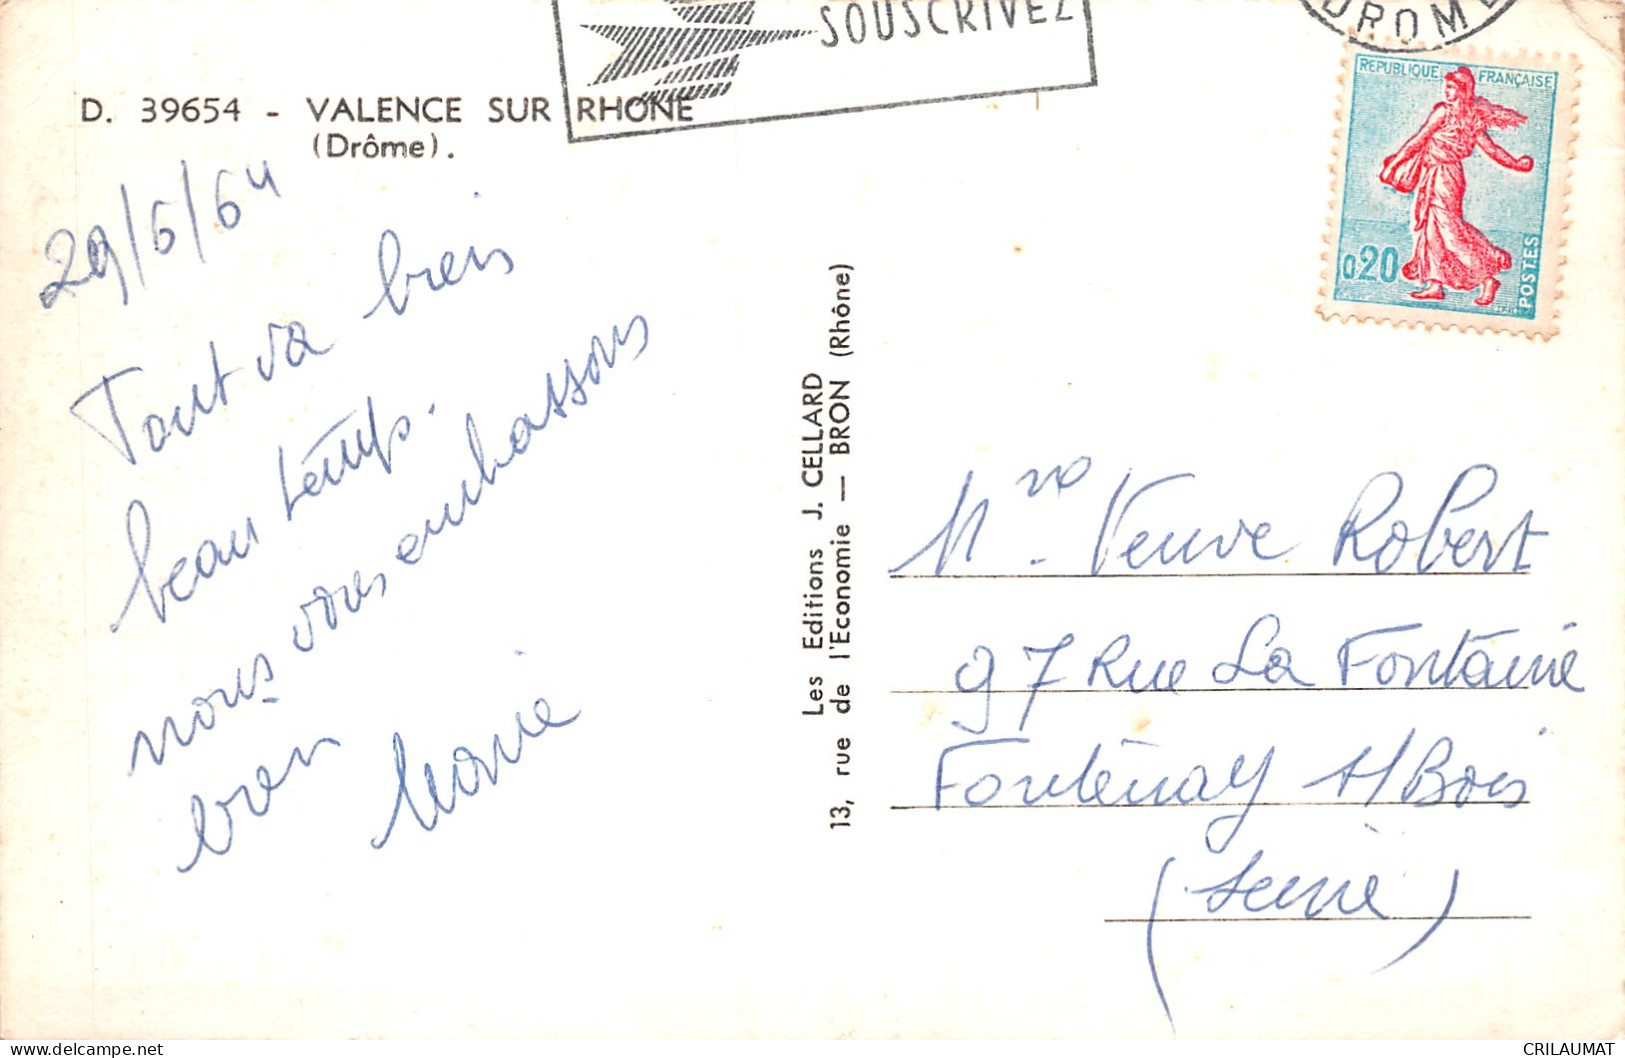 SOUSCRIVEZ
DROME
REPUBLIQUE FRANÇAISE
0,20
POSTES
D. 39654 - VALENCE SUR RHÔNE
(Drôme).
29/6/64
Tout va bien
beau temps.
nous vous embrassons
bien
Les Editions J. CELLARD
13, rue de l'Economie — BRON (Rhône)
Mme Veuve Robert
97 Rue La Fontaine
Fontenay s/Bois
(Seine)
delcampe.net
CRILAUMAT